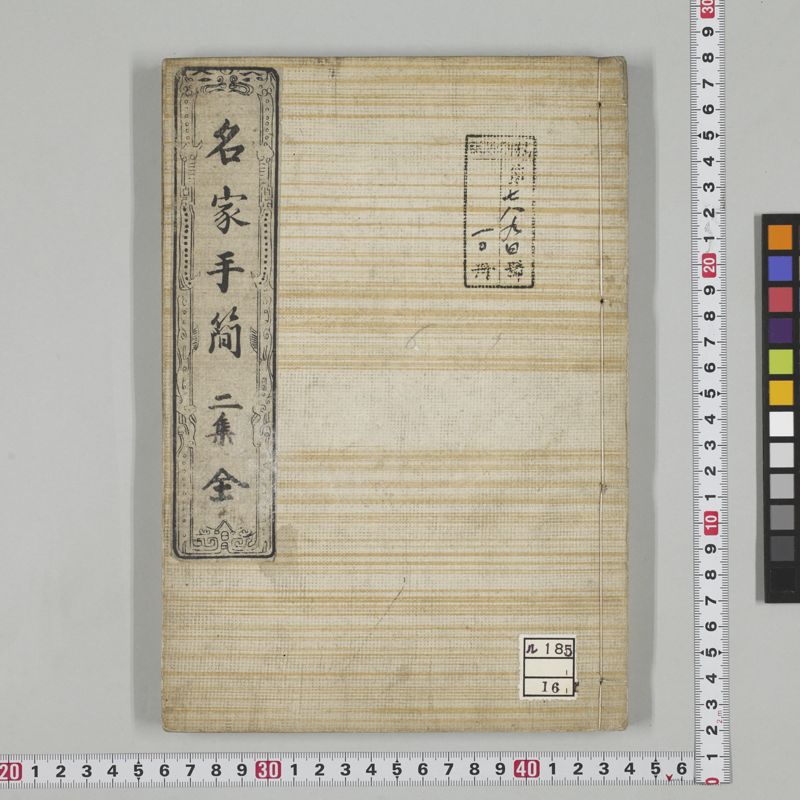 名家手簡 二集 全
第七八九四號
一冊
ル 185
16
20 1 2 3 4 5 6 7 8 9 30 1 2 3 4 5 6 7 8 9 40 1 2 3 4 5 6
30 9 8 7 6 5 4 3 2 1 20 9 8 7 6 5 4 3 2 1 10 9 8 7 6 5 4 3 2 1 0